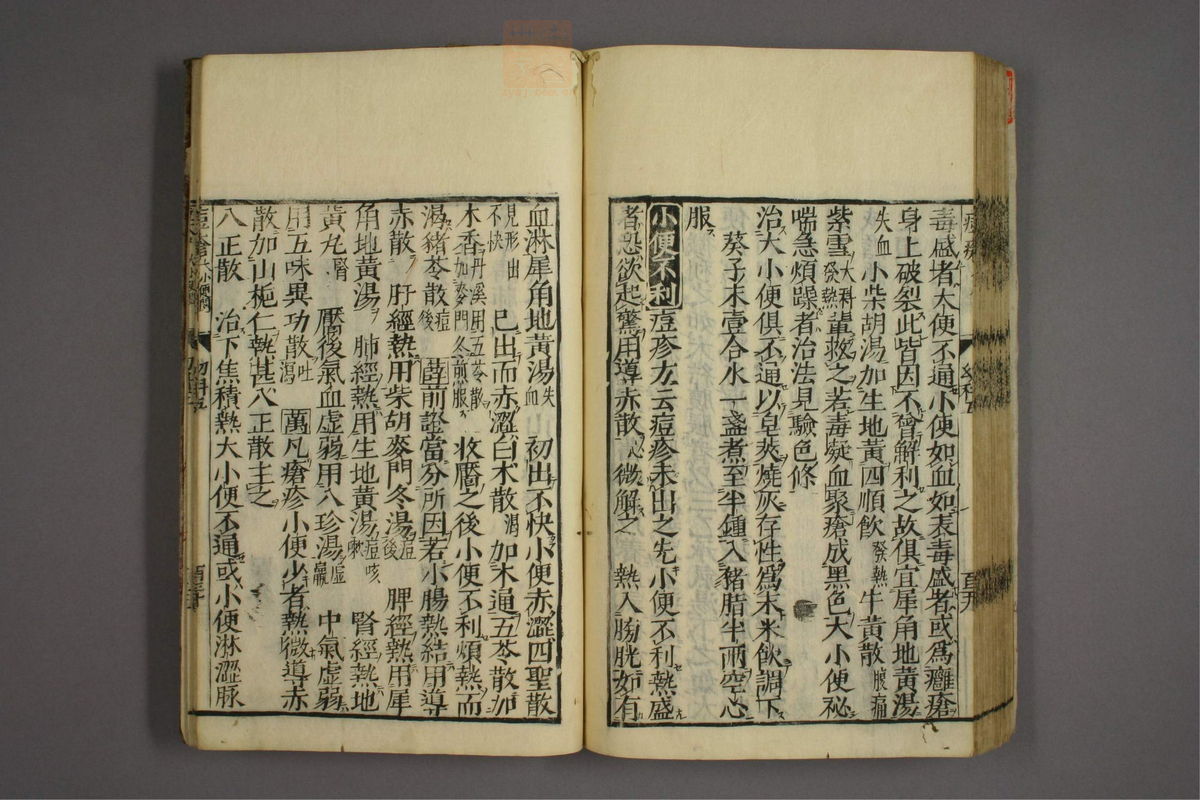 毒盛者大便不通小便如血如表毒盛者或爲癰瘡
身上破裂此皆因不曾解利之故俱宜犀角地黃湯
失血 小柴胡湯加生地黃四順飲發熱牛黃散腹痛
紫雪大科發熱輩救之若毒凝血聚瘡成黑色大小便秘
喘急煩躁者治法見驗色條
治大小便俱不通以皂莢燒灰存性爲末米飲調下
葵子末壹合水一盞煮至半鍾入豬脂半兩空心
服
小便不利 痘疹方云痘疹未出之先小便不利熱盛
者恐欲起驚用導赤散 微解之 熱入膀胱如有
血淋犀角地黃湯失血 初出不快小便赤澀四聖散
見形出不快 已出而赤澀白朮散渴加木通五苓散加
木香丹溪用五苓散加麥門冬煎服 收靨之後小便不利煩熱而
渴豬苓散痘後 薛前證當分所因若小腸熱結用導
赤散 肝經熱用柴胡麥門冬湯痘後 脾經熱用犀
角地黃湯 肺經熱用生地黃湯痘咳嗽 腎經熱地
黃丸腎 靨後氣血虛弱用八珍湯虛羸 中氣虛弱
用五味異功散吐瀉 萬凡瘡疹小便少者熱微導赤
散加山梔仁熱甚八正散主之
八正散 治下焦積熱大小便不通或小便淋澀脉